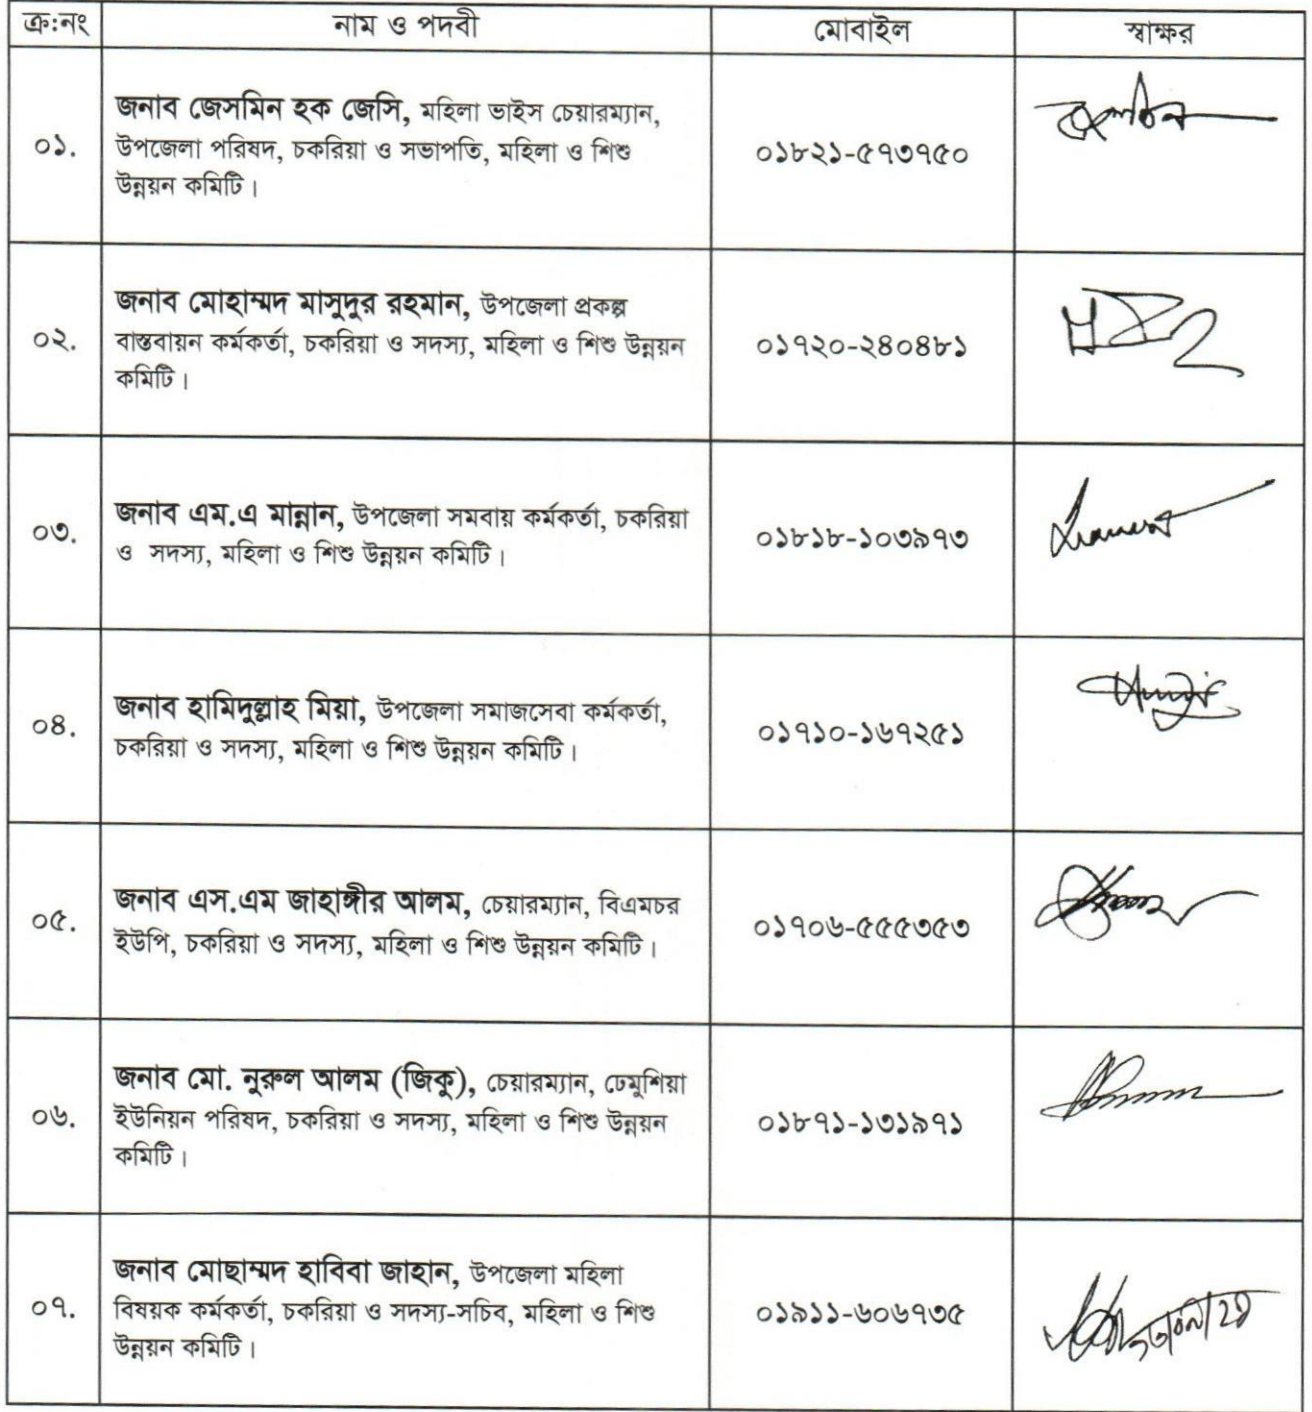 ক্র:নং নাম ও পদবী মোবাইল স্বাক্ষর
০১. জনাব জেসমিন হক জেসি, মহিলা ভাইস চেয়ারম্যান,
উপজেলা পরিষদ, চকরিয়া ও সভাপতি, মহিলা ও শিশু
উন্নয়ন কমিটি।
০১৮২১-৫৭৩৭৫০
০২. জনাব মোহাম্মদ মাসুদুর রহমান, উপজেলা প্রকল্প
বাস্তবায়ন কর্মকর্তা, চকরিয়া ও সদস্য, মহিলা ও শিশু উন্নয়ন
কমিটি।
০১৭২০-২৪০৪৮১
০৩. জনাব এম.এ মান্নান, উপজেলা সমবায় কর্মকর্তা, চকরিয়া
ও সদস্য, মহিলা ও শিশু উন্নয়ন কমিটি।
০১৮১৮-১০৩৯৭৩
০৪. জনাব হামিদুল্লাহ মিয়া, উপজেলা সমাজসেবা কর্মকর্তা,
চকরিয়া ও সদস্য, মহিলা ও শিশু উন্নয়ন কমিটি।
০১৭১০-১৬৭২৫১
০৫. জনাব এস.এম জাহাঙ্গীর আলম, চেয়ারম্যান, বিএমচর
ইউপি, চকরিয়া ও সদস্য, মহিলা ও শিশু উন্নয়ন কমিটি।
০১৭০৬-৫৫৫৩৫৩
০৬. জনাব মো. নুরুল আলম (জিকু), চেয়ারম্যান, ঢেমুশিয়া
ইউনিয়ন পরিষদ, চকরিয়া ও সদস্য, মহিলা ও শিশু উন্নয়ন
কমিটি।
০১৮৭১-১৩১৯৭১
০৭. জনাব মোছাম্মদ হাবিবা জাহান, উপজেলা মহিলা
বিষয়ক কর্মকর্তা, চকরিয়া ও সদস্য-সচিব, মহিলা ও শিশু
উন্নয়ন কমিটি।
০১৯১১-৬০৬৭৩৫